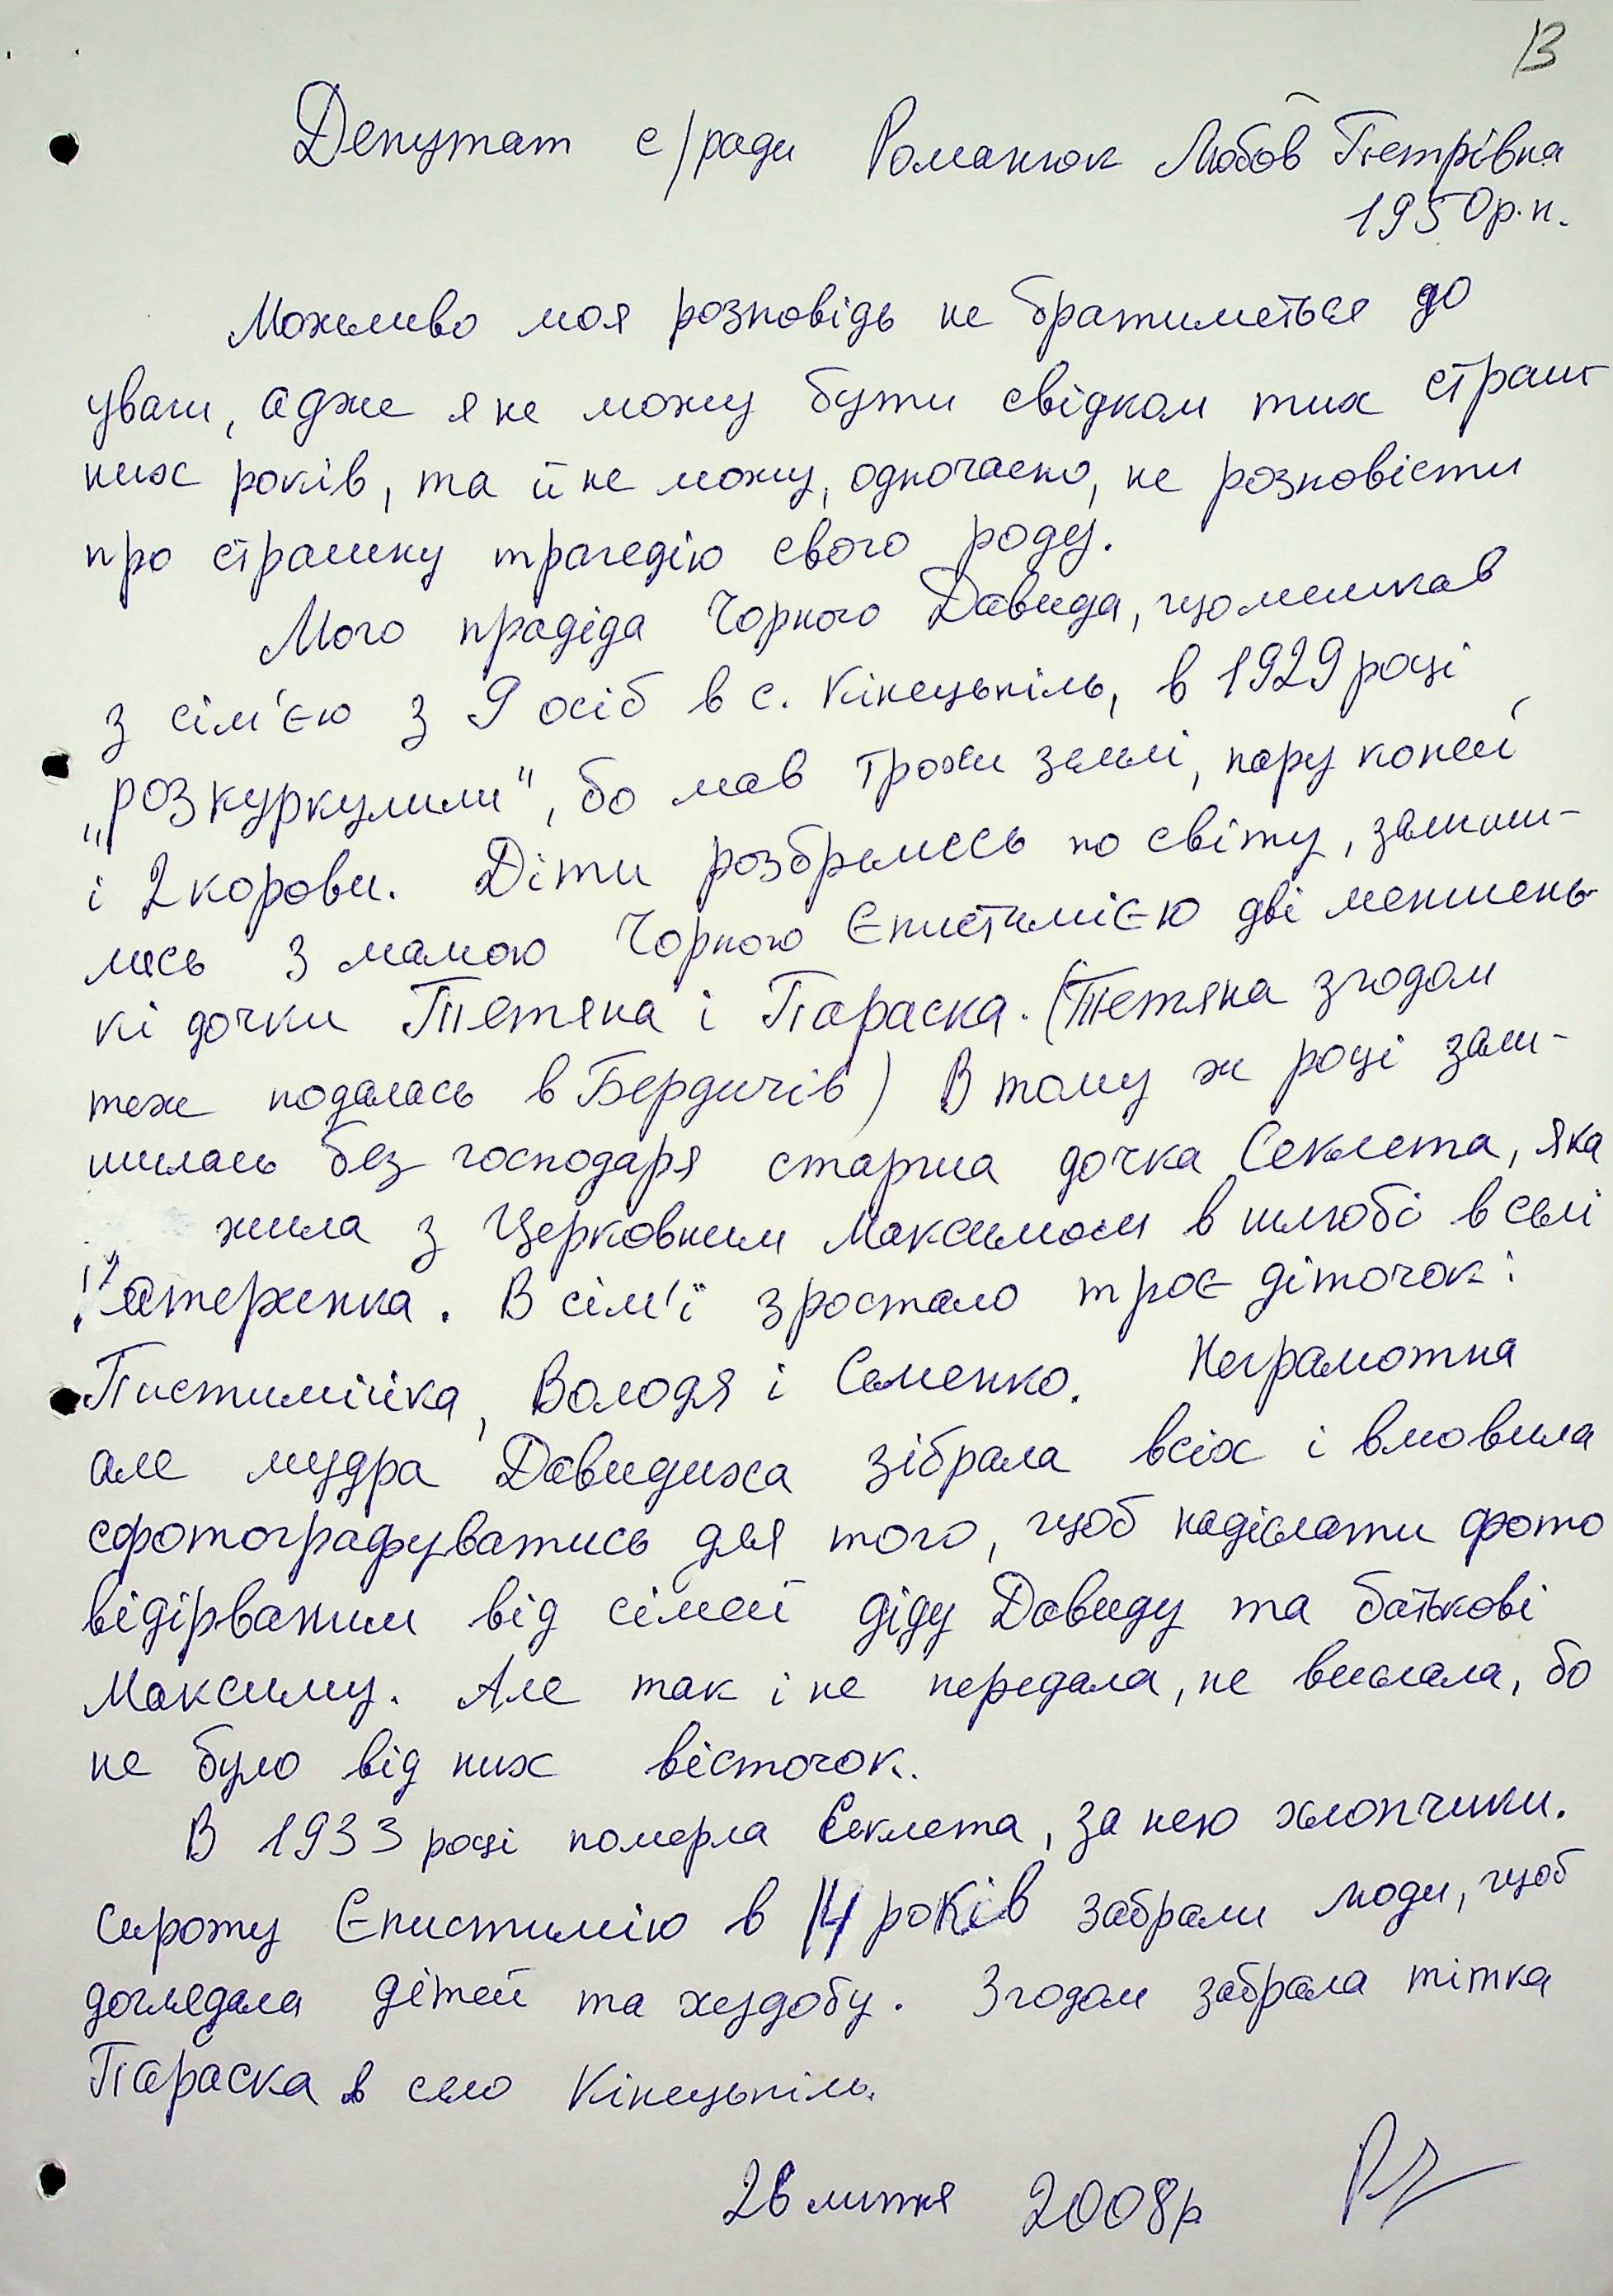 13
Депутат с/ради Романюк Любов Петрівна
1950р.н.
Можливо моя розповідь не братиметься до
уваги, адже я не можу бути свідком тих страш-
них років, та й не можу, одночасно, не розповісти
про страшну трагедію свого роду.
Мого прадіда Чорного Давида, що мешкав
з сім'єю з 9 осіб в с. Кінецьпіль, в 1929 році
„розкуркулили", бо мав трохи землі, пару коней
і 2 корови. Діти розбрелись по світу, залиши-
лись з мамою Чорною Єпистимією дві меншень-
кі дочки Тетяна і Параска. (Тетяна згодом
теж подалась в Бердичів) В тому ж році зали-
шилась без господаря старша дочка Секлета, яка
жила з Церковним Максимом в шлюбі в селі
Катеринка. В сім'ї зростало троє діточок:
Пистимійка, Володя і Семенко. Неграмотна
але мудра Давидиха зібрала всіх і вмовила
сфотографуватись для того, щоб надіслати фото
відірваним від сімей діду Давиду та батькові
Максиму. Але так і не передала, не вислала, бо
не було від них вісточок.
В 1933 році померла Секлета, за нею хлопчики.
Сироту Єпистимію в 14 років забрали люди, щоб
доглядала дітей та худобу. Згодом забрала тітка
Параска в село Кінецьпіль.
26 липня 2008р